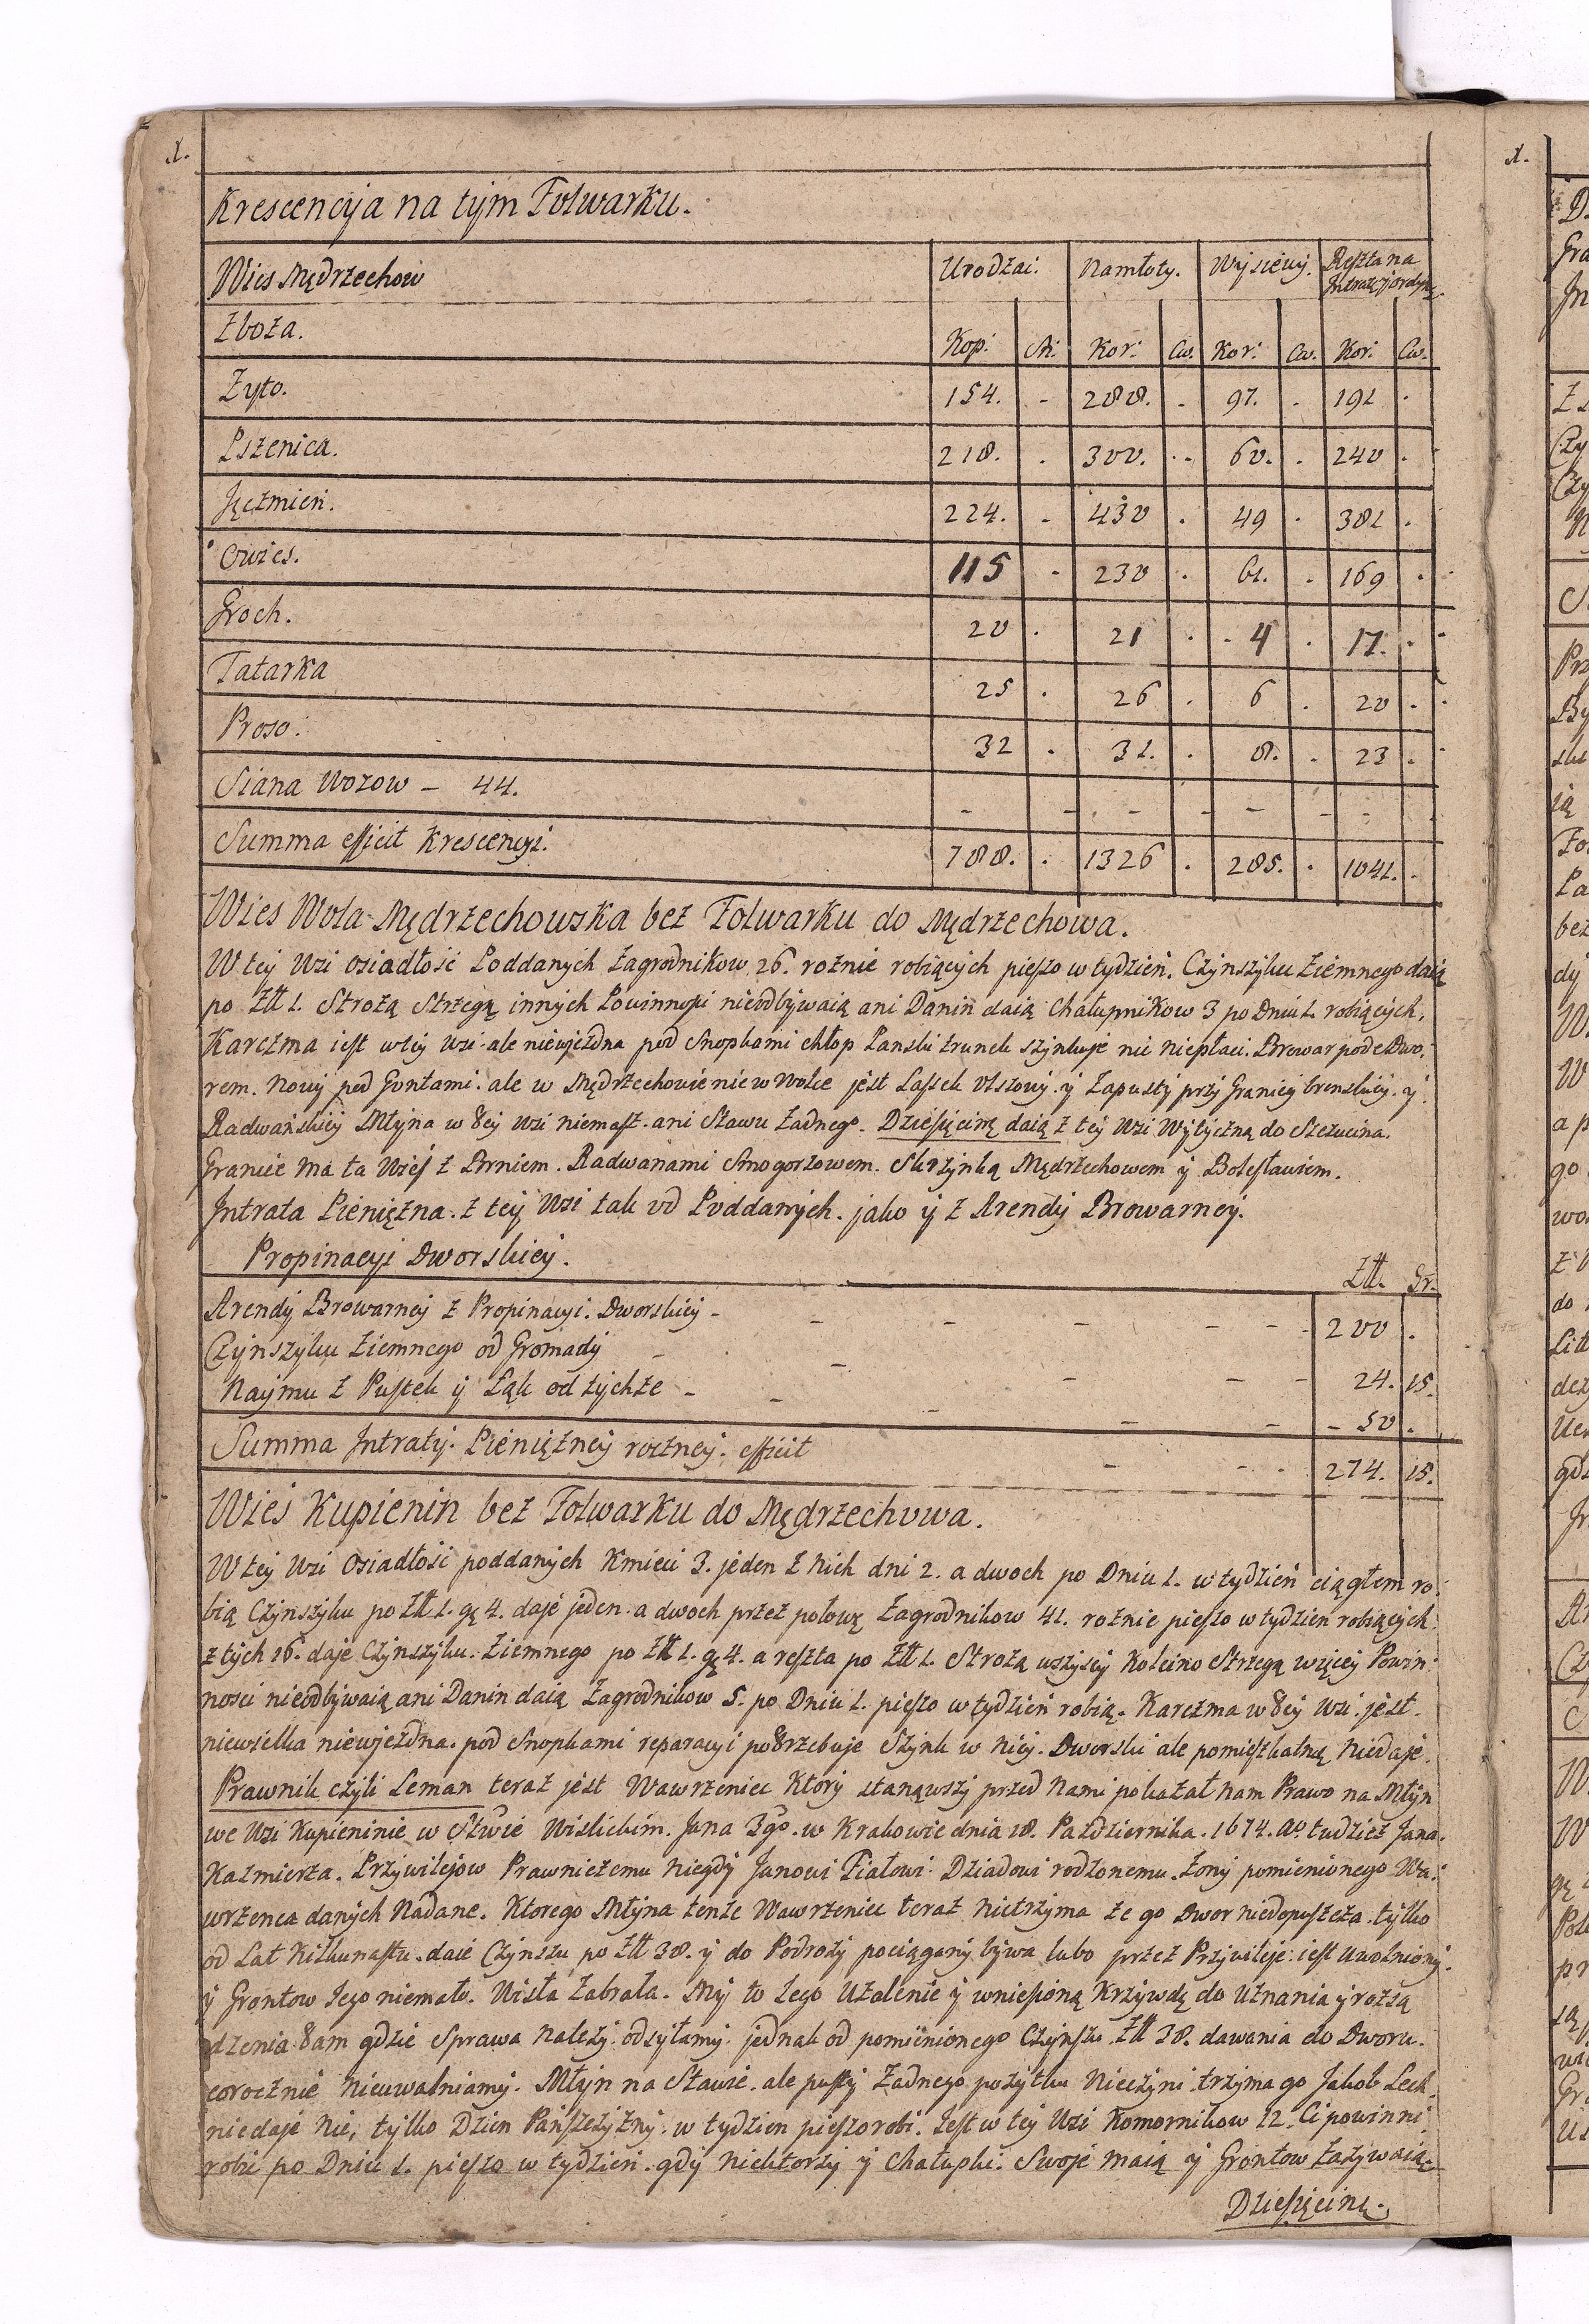 Krescencyja na tym Folwarku.
Wies Mędrzechow Urodzai. Namłoty. Wysiewy. Reszta na Intratę y ordyn.
Zboża. Kop: Kor: Cw. Kor: Cw. Kor: Cw.
Żyto. 154. - 288. . 97. . 191 .
Pszenica. 218. . 300. . 60. . 240 .
Jęczmień. 224. - 430 . 49 . 381 .
Owies. 115 - 230 . 61. . 169 .
Groch. 20 . 21 . 4 . 17. .
Tatarka 25 . 26 . 6 . 20 .
Proso: 32 . 31. . 8. . 23 .
Siana Wozow - 44. - - - - - - -
Summa efficit Krescencyi. 788. . 1326 . 285. . 1041. .
Wies Wola Mędrzechowska bez Folwarku do Mędrzechowa.
W tey Wsi osiadłość Poddanych Zagrodnikow 26. rożnie robiących pieszo w tydzień. Czynszyku Ziemnego daią
po Złł 1. Strożą Strzegą innych Powinności nieodbywaią ani Danin daią Chałupnikow 3 po Dniu 1. robiących.
Karczma iest w tey Wsi ale niewjezdna pod Snopkami chłop Panski trunek szynkuje nic niepłaci. Browar pode Dwo:
rem. Nowy pod Gontami. ale w Mędrzechowie nie w Wolce jest Lassek Olszowy. y Zapusty przy Granicy brenskiey. y
Radwańskiey Młyna w tey Wsi niemasz. ani Stawu Żadnego. Dziesięcinę daią z tey Wsi Wytyczną do Szczucina.
Granice ma ta Wieś z Brniem. Radwanami Smogorzowem. Skrzynką Mędrzechowem y Bolesławiem.
Jntrata Pieniężna. z tey Wsi tak od Poddanych. jako y z Arendy Browarney.
Propinacyi Dworskiey. Złł. Gr.
Arendy Browarney z Propinacyi. Dworskiey - - - - - - 200 .
Czynszyku Ziemnego od Gromady - - - - - 24. 15.
Naymu z Pustek y Łąk od tychże - - - - - - 50 .
Summa Jntraty. Pieniężney roczney. efficit - - - 274. 15.
Wieś Kupienin bez Folwarku do Mędrzechowa.
W tey Wsi Osiadłość poddanych Kmieci 3. jeden z nich dni 2. a dwoch po Dniu 1. w tydzień ciągłem ro:
bią Czynszyku po Złł 1. gę 4. daje jeden. a dwoch przez połowę Zagrodnikow 41. rożnie pieszo w tydzien robiących.
z tych 16. daje Czynszyku. Ziemnego po Złł 1. gę 4. a reszta po Złł 1. Strożą wszyscy Koleino Strzegą więcey Powin:
nosci nieodbywaią ani Danin daią Zagrodnikow 5. po Dniu 1. pieszo w tydzień robią. Karczma w tey Wsi. jest.
niewielka niewjezdna. pod Snopkami reparacyi potrzebuje Szynk w niey. Dworski ale pomieszkalną niedaje.
Prawnik czyli Leman teraz jest Wawrzeniec Ktory stanąwszy przed nami pokazał nam Prawo na Młyn
we Wsi Kupieninie w Wislickim. Jana 3go. w Krakowie dnia 18. Pazdziernika. 1674. Ao. tudzież Jana.
Kazmierza. Przywilejow Prawniezemu niegdy Janowi Fiałowi. Dziadowi rodzonemu. Żony pomienionego Wa:
wrzenca danych Nadane. Ktorego Młyna tenże Wawrzeniec teraz nietrzyma że go Dwor niedopuszcza. tylko
od Lat Kilkunastu. daie Czynszu po Złł 38. y do Podroży pociągany bywa lubo przez Przywileje iest uwolniony.
y Grontow Jego niemało. Wisła Zabrała. My to Jego Użalenie y wniesioną Krzywdę do Uznania y rozsą
dzenia tam gdzie Sprawa należy. odsyłamy. jednak od pomienionego Czynszu Złł 38. dawania do Dworu.
corocznie nieuwalniamy. Młyn na Stawie. ale pusty Żadnego pożytku nieczyni. trzyma go Jakob Lech.
niedaje nic, tylko Dzien Pańszczyzny. w tydzien pieszo robi. Jest w tey Wsi Komornikow 12. Ci powinni
robić po Dniu 1. pieszo w tydzień. gdy niektorzy y Chałupki. Swoje maią y Grontow Zażywaią.
Dziesięcinę.